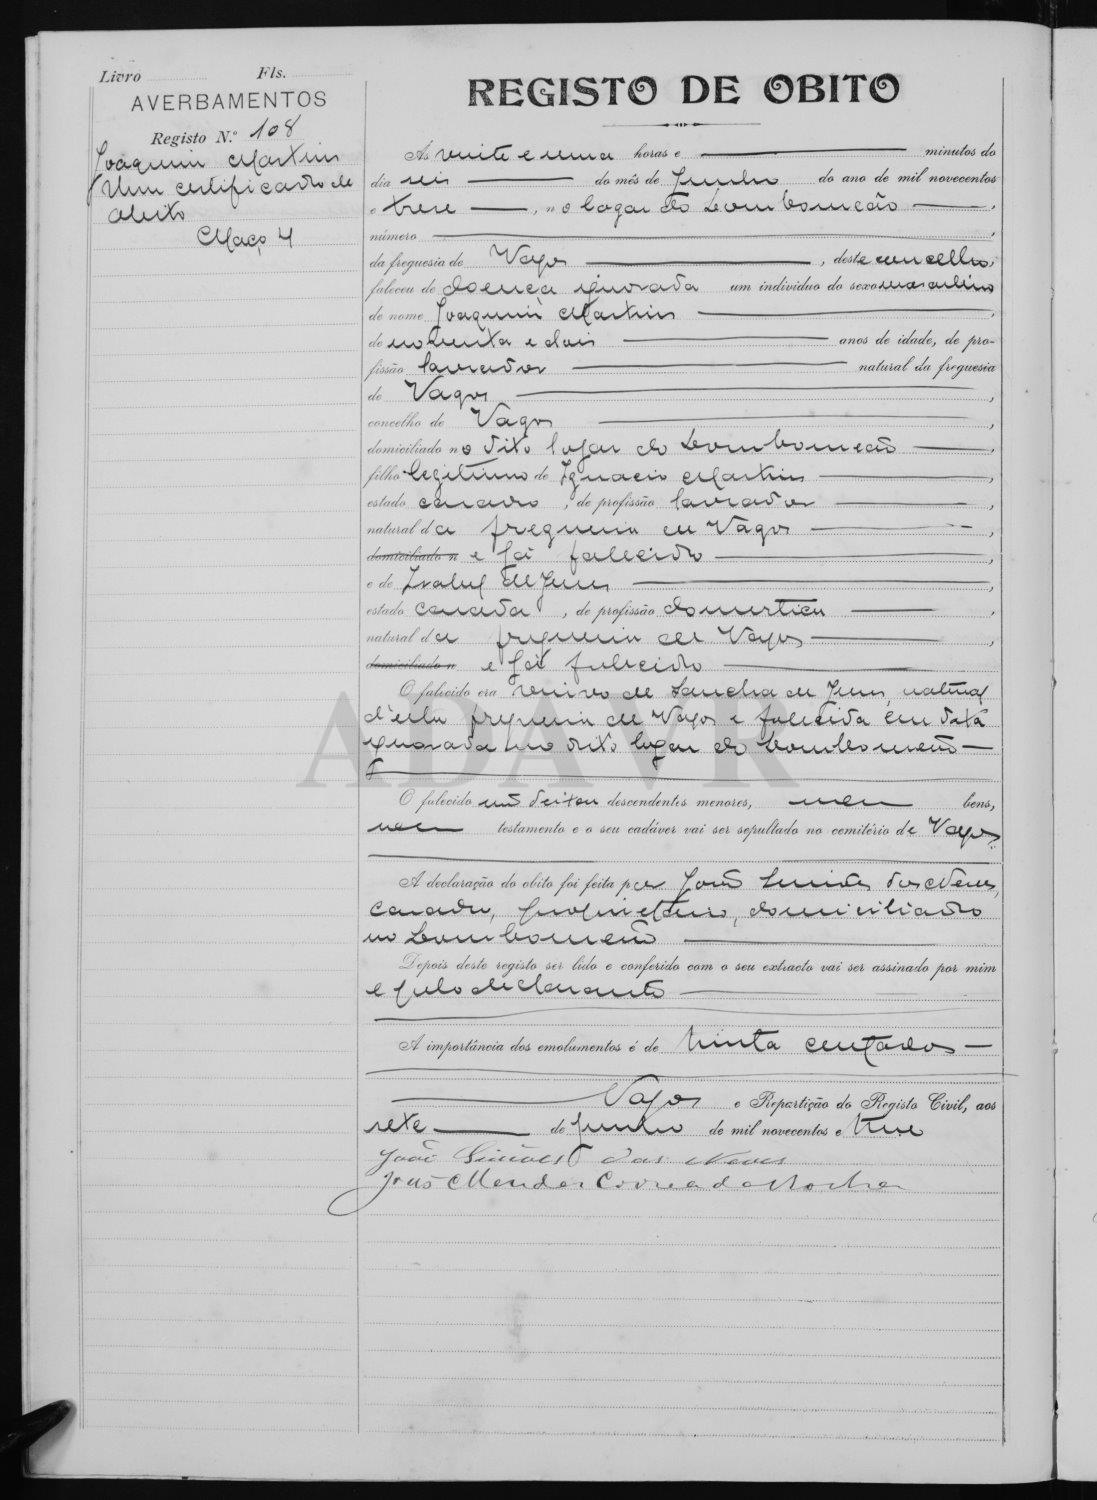 Livro Fls.
AVERBAMENTOS
Registo N.º 108
Joaquim Martins
Um certificado de
obito
Maço 4
REGISTO DE OBITO
Ás vinte e uma horas e minutos do
dia seis do mês de Junho do ano de mil novecentos
e treze, no logar do Lombomeão,
número
da freguesia de Vagos, deste concelho,
faleceu de doença ignorada um individuo do sexo masculino
de nome Joaquim Martins,
de noventa e dois anos de idade, de pro-
fissão lavrador natural da freguesia
de Vagos,
concelho de Vagos,
domiciliado no dito logar do Lombomeão,
filho legitimo de Ignacio Martins,
estado casado, de profissão lavrador,
natural da freguesia de Vagos,
domiciliado n e já falecido,
e de Izabel de Jesus,
estado casada, de profissão domestica,
natural da freguesia de Vagos,
domiciliado n e já falecido
O falecido era viuvo de Sancha de Jesus, natural
d'esta freguesia de Vagos e falecida em data
ignorada no dito logar do Lombomeão
O falecido não deixou descendentes menores, nem bens,
nem testamento e o seu cadáver vai ser sepultado no cemitério de Vagos.
A declaração do obito foi feita por João Simões das Neves,
casado, proprietario, domiciliado
no Lombomeão
Depois deste registo ser lido e conferido com o seu extracto vai ser assinado por mim
e pelo declarante
A importância dos emolumentos é de trinta centavos
Vagos e Repartição do Registo Civil, aos
sete de Junho de mil novecentos e treze
João Simões das Neves
João Mendes Correa da Rocha
ADAVR